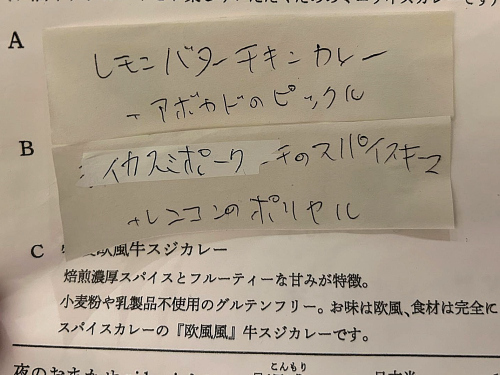 A
レモンバターチキンカレー
+アボカドのピックル
B
イカスミポーク キのスパイスキーマ
+レンコンのポリヤル
C 欧風牛スジカレー
焙煎濃厚スパイスとフルーティーな甘みが特徴。
小麦粉や乳製品不使用のグルテンフリー。お味は欧風、食材は完全に
スパイスカレーの『欧風風』牛スジカレーです。
こんもり